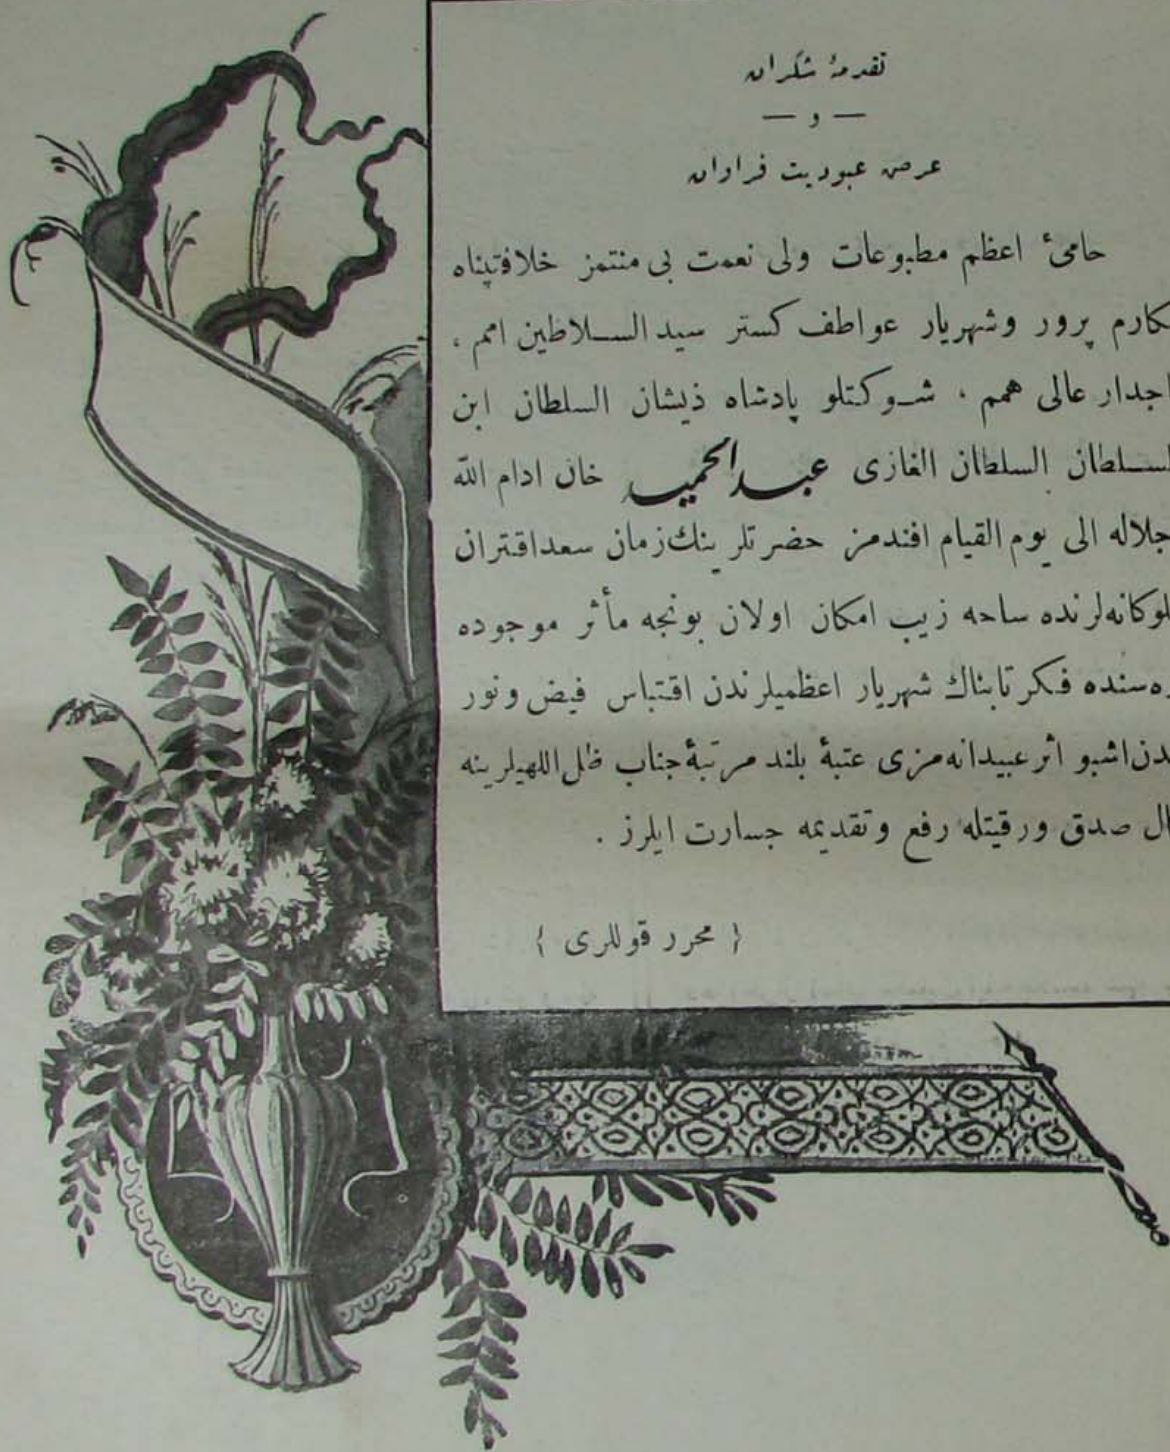 تقدمهٔ شكران
— و —
عرض عبوديت فراوان
حامئ اعظم مطبوعات ولی نعمت بی منتمز خلافتپناه
كارم پرور وشهريار عواطف كستر سيد السلاطين امم ،
اجدار عالی همم ، شوكتلو پادشاه ذيشان السلطان ابن
لسلطان السلطان الغازی عبدالحميد خان ادام الله
جلاله الی يوم القيام افندمز حضرتلرينك زمان سعداقتران
لوكانه‌لرنده ساحه زيب امكان اولان بونجه مأثر موجوده
ه‌سنده فكر تابناك شهريار اعظميلرندن اقتباس فيض ونور
يدن اشبو اثر عبيدانه‌مزی عتبهٔ بلند مرتبهٔ جناب ظل اللهيلرينه
ال صدق ورقيتله رفع وتقديمه جسارت ايلرز .
{ محرر قوللری }